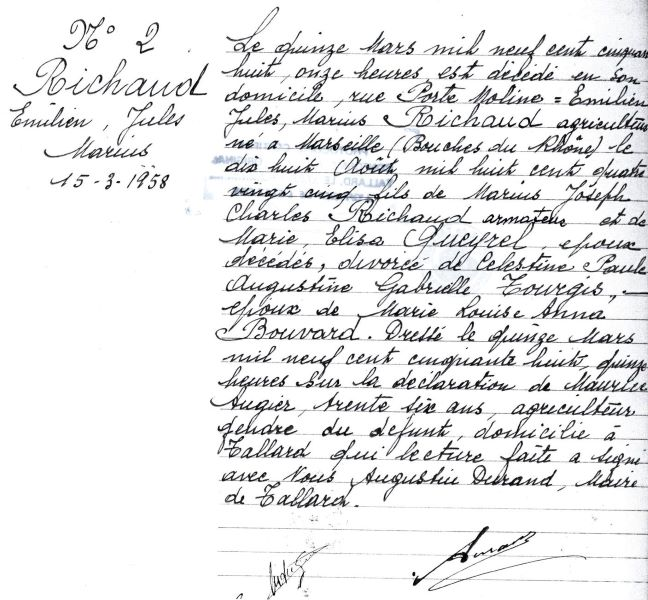 N° 2
Richaud
Emilien, Jules
Marius
15-3-1958
Le quinze Mars mil neuf cent cinquan
huit, onze heures, est décédé en son
domicile, rue Porte Moline = Emilien
Jules, Marius Richaud agriculteur
né à Marseille (Bouches du Rhône) le
dix huit Août mil huit cent quatre
vingt cinq fils de Marius Joseph
Charles Richaud armateur et de
Marie, Elisa Queyrel, époux
décédés, divorcé de Celestine Paule
Augustine Gabrielle Tourgis, —
époux de Marie Louise Anna
Bouvard. Dressé le quinze Mars
mil neuf cent cinquante huit, quinze
heures sur la déclaration de Maurice
Augier, trente six ans, agriculteur
gendre du défunt, domicilié à
Tallard qui lecture faite a signé
avec Nous Augustin Durand, Maire
de Tallard.